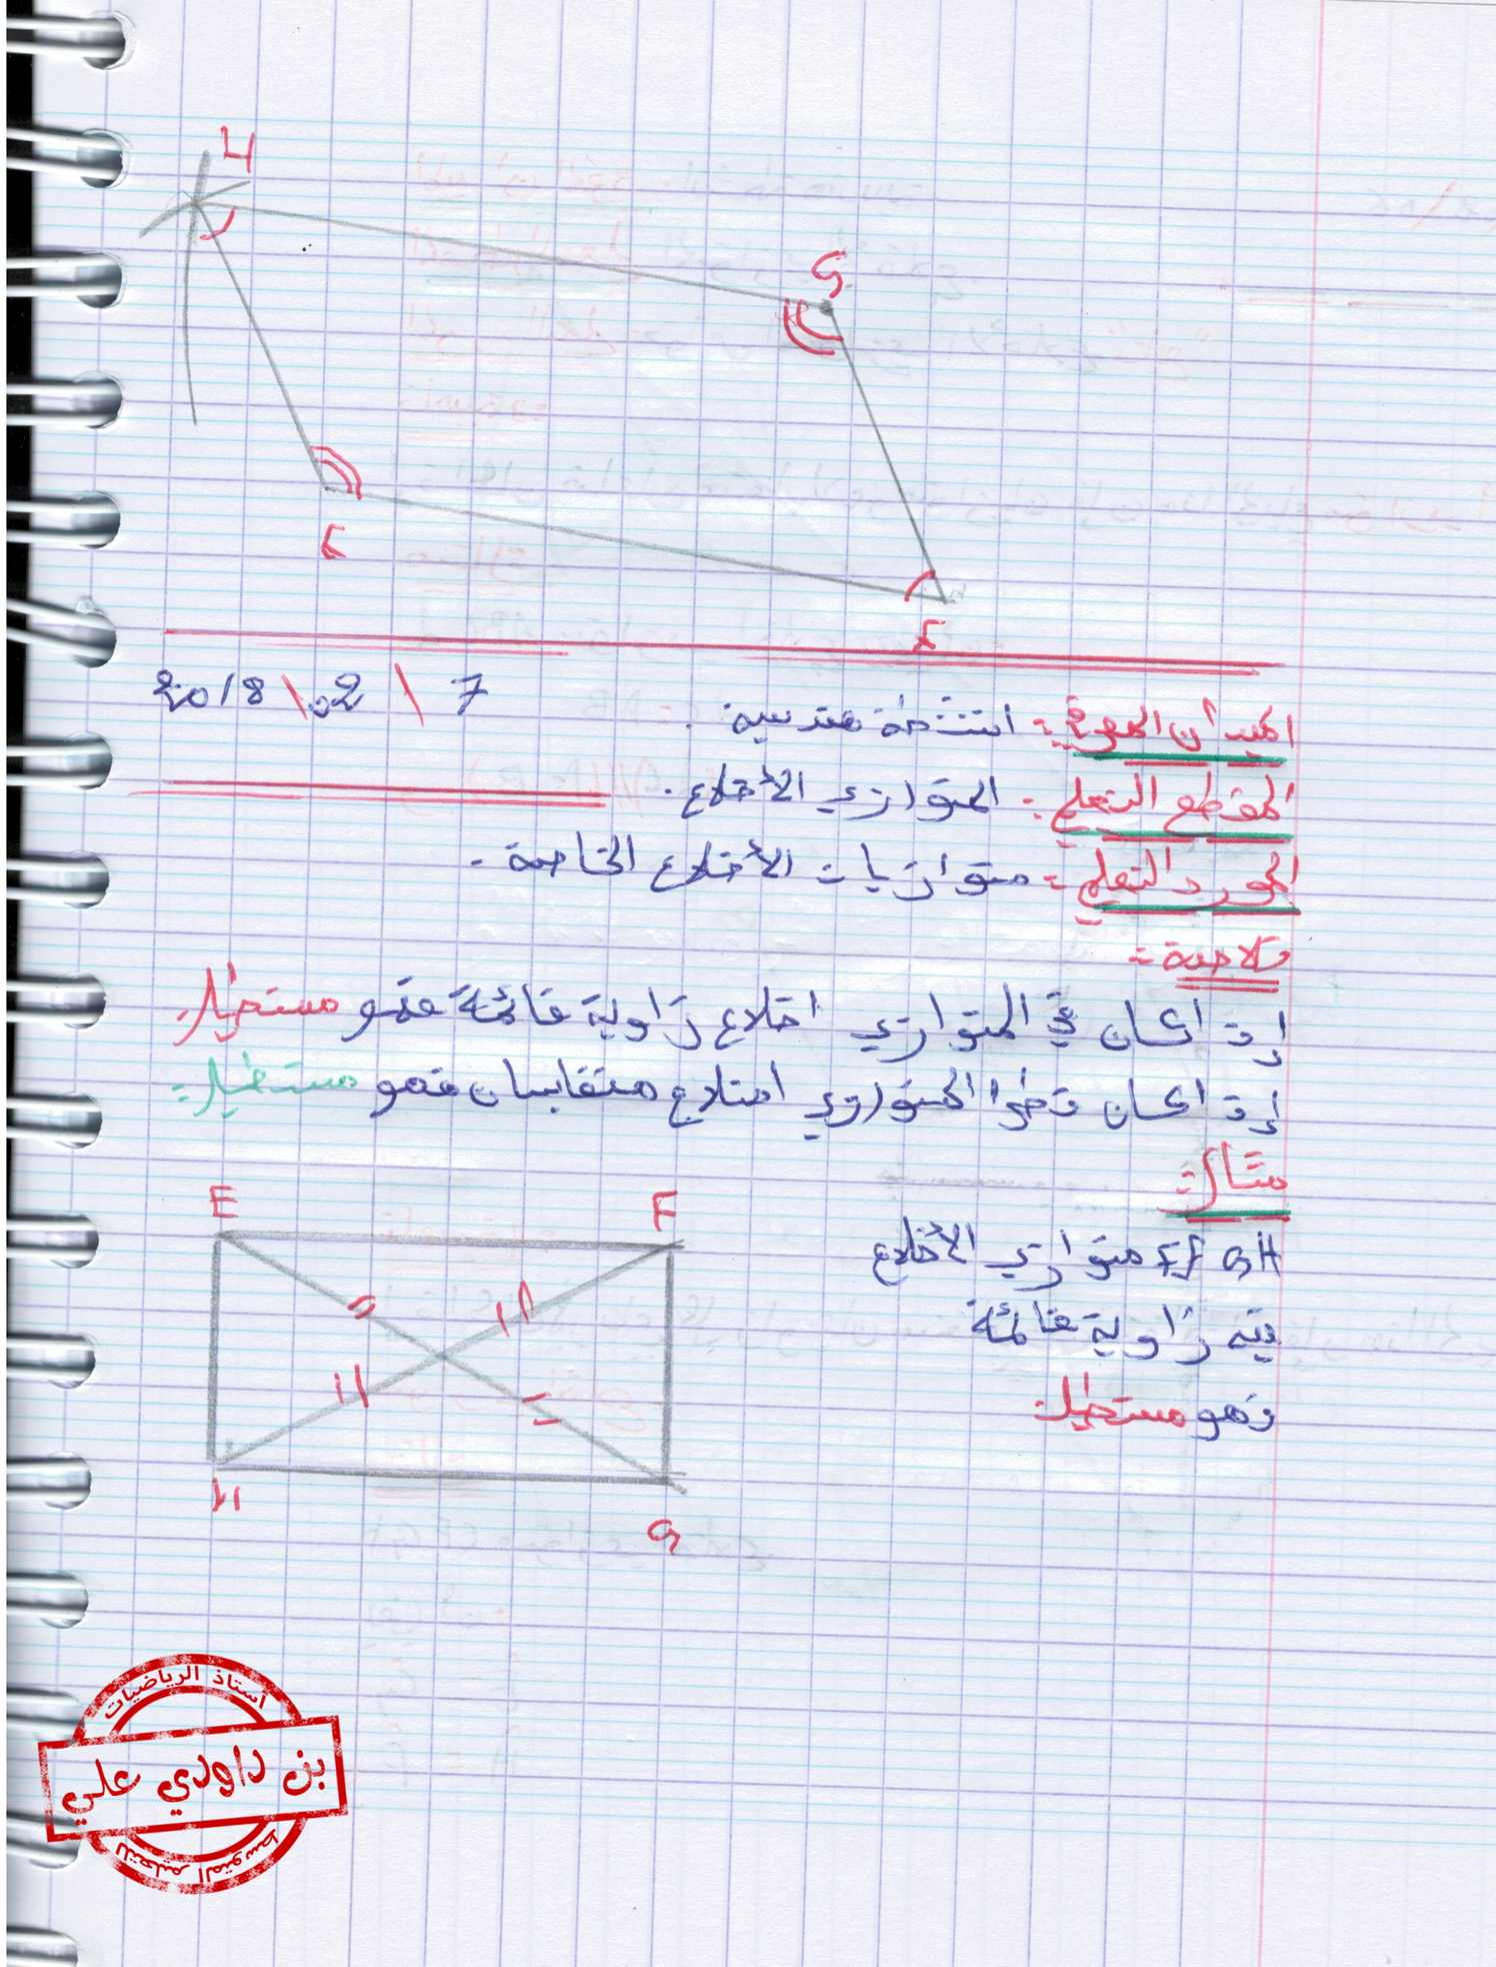 H
G
E
F
2018 \ 02 \ 7
الميدان المعرفي :- انتشطة هندسية .
المقطع التعلمي :- المتوازي الأضلاع .
المورد التعلمي :- متوازيات الأضلاع الخاصة .
خلاصة :-
إذا كان في المتوازي اضلاع زاوية قائمة فهو مستطيل .
إذا كان قطرا المتوازي اضلاع متقايسان فهو مستطيل :
مثال :
E F
EFGH متوازي الأضلاع
فيه زاوية قائمة
فهو مستطيل
H
G
أستاذ الرياضيات
بن داودي علي
للتعليم المتوسط